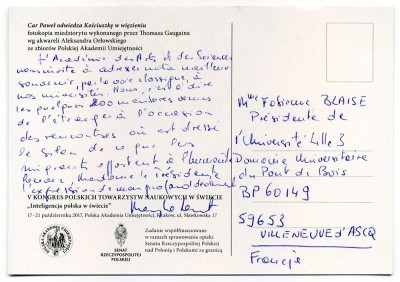 Car Paweł odwiedza Kościuszkę w więzieniu
fotokopia miedziorytu wykonanego przez Thomasa Gaugaina
wg akwareli Aleksandra Orłowskiego
ze zbiorów Polskiej Akademii Umiejętności
L'Académie des Arts et des Sciences
à adresser notre meilleur
souvenir, par la voie classique, à
nos Nous, c'est à dire
les quelques 200 membres venus
de l'étranger à l'occasion
des rencontres où est dressé
le bilan de ce que les
migrants apportent à l'humanité
Madame la Présidente
l'expression de mon profond dévouement
V KONGRES POLSKICH TOWARZYSTW NAUKOWYCH W ŚWIECIE
"Inteligencja polska w świecie"
17–21 października 2017, Polska Akademia Umiejętności, Kraków, ul. Sławkowska 17
POLSKA AKADEMIA UMIEJĘTNOŚCI
SENAT
RZECZYPOSPOLITEJ
POLSKIEJ
Zadanie współfinansowane
w ramach sprawowania opieki
Senatu Rzeczypospolitej Polskiej
nad Polonią i Polakami za granicą
Mme Fabienne BLAISE
Présidente de
l'Université Lille 3
Domaine Universitaire
du Pont de Bois
BP 60149
59653
VILLENEUVE d'ASCQ
Francja